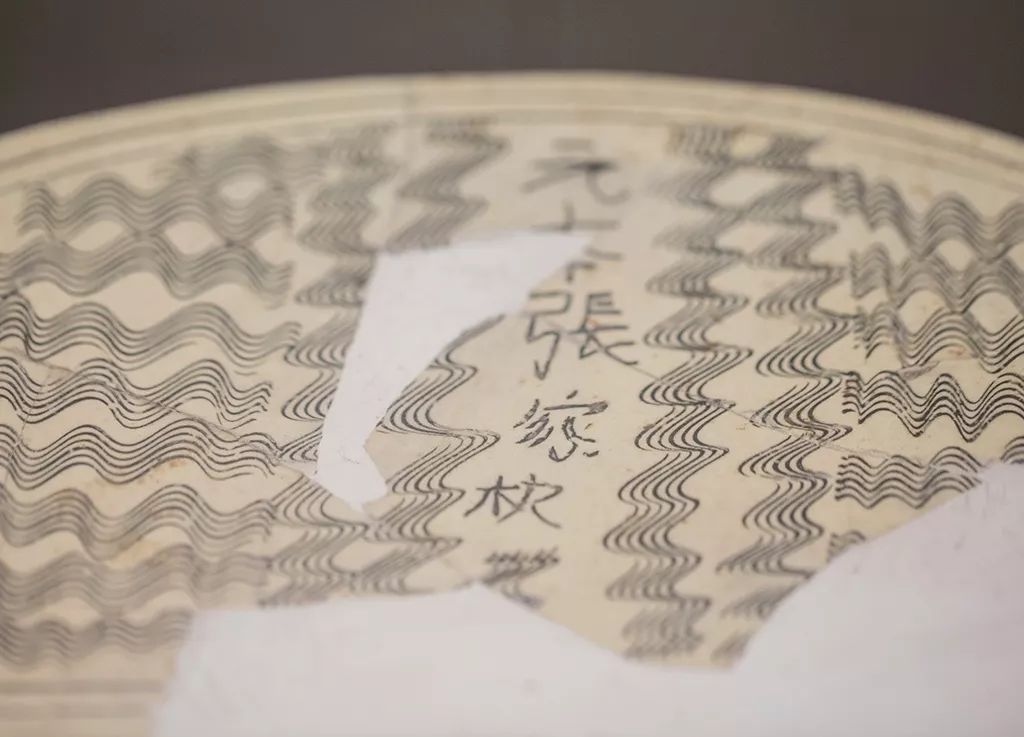 元 張家枕